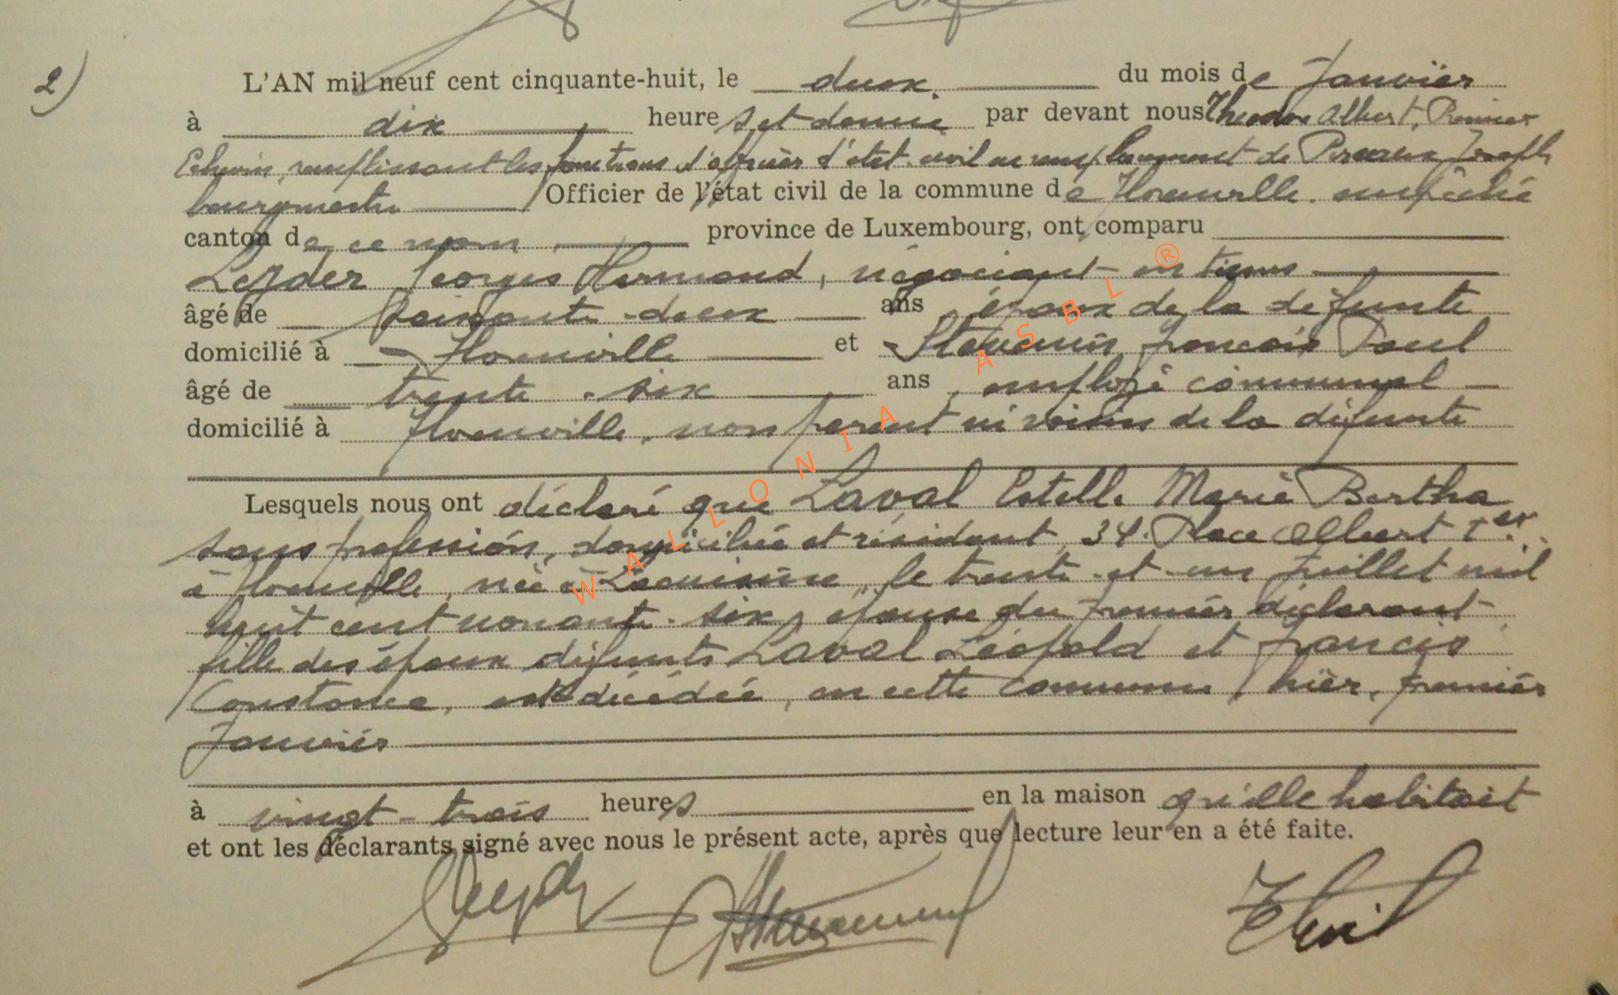 2)
L'AN mil neuf cent cinquante-huit, le deux. du mois de Janvier
à dix heures et demie par devant nous Albert, Premier
Echevin, remplissant les fonctions d'officier d'état-civil en remplacement de Joseph
bourgmestre Officier de l'état civil de la commune de
canton de ce nom province de Luxembourg, ont comparu
Leyder Georges Hermand, négociant en tissus
âgé de soixante-deux ans époux de la défunte
domicilié à et Stevenin françois Paul
âgé de trente-six ans, employé communal
domicilié à non parent ni voisin de la défunte
Lesquels nous ont déclaré que Laval Estelle Marie Bertha
sans profession, domiciliée et résidant, 34 Place Albert 1er.
à née à le trente-et-un Juillet mil
huit cent nonante-six, épouse du premier déclarant
fille des époux défunts Laval Léopold et francois
Constance, est décédée, en cette commune hier, premier
Janvier
à vingt-trois heures en la maison qu'elle habitait
et ont les déclarants signé avec nous le présent acte, après que lecture leur en a été faite.
WALLONIA ASBL ®